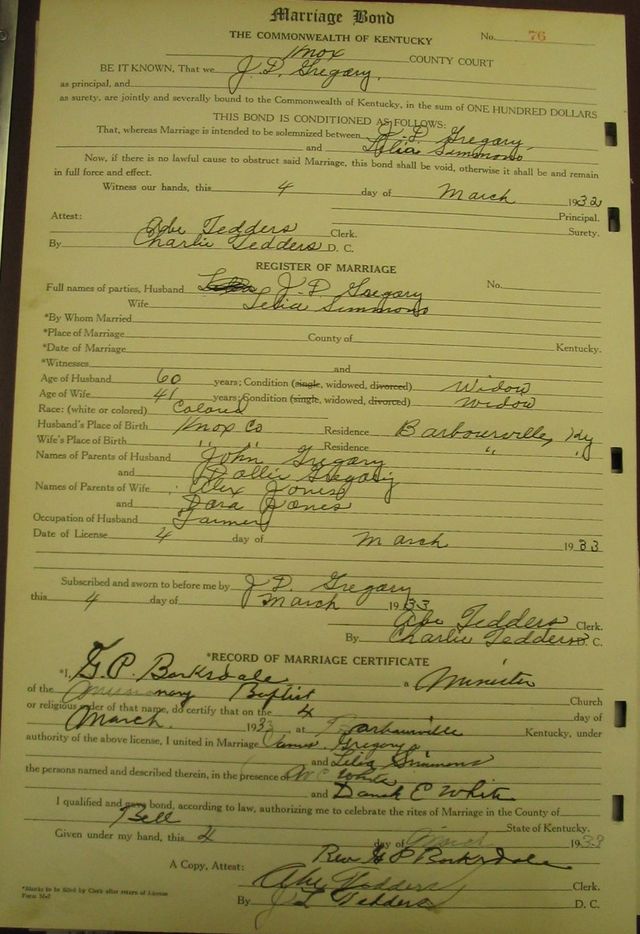 Marriage Bond
THE COMMONWEALTH OF KENTUCKY No. 76
Knox COUNTY COURT
BE IT KNOWN, That we J. D. Gregary,
as principal, and
as surety, are jointly and severally bound to the Commonwealth of Kentucky, in the sum of ONE HUNDRED DOLLARS
THIS BOND IS CONDITIONED AS FOLLOWS:
That, whereas Marriage is intended to be solemnized between J. D Gregary,
and Lelia Simmons
Now, if there is no lawful cause to obstruct said Marriage, this bond shall be void, otherwise it shall be and remain
in full force and effect.
Witness our hands, this 4 day of March 1933
Principal.
Attest: Surety.
Abe Tedders Clerk.
By Charlie Tedders D. C.
REGISTER OF MARRIAGE
Full names of parties, Husband J. D Gregary No.
Wife Lelia Simmons
*By Whom Married
*Place of Marriage County of Kentucky.
*Date of Marriage
*Witnesses and
Age of Husband 60 years; Condition (single, widowed, divorced) Widow
Age of Wife 41 years; Condition (single, widowed, divorced) Widow
Race: (white or colored) Colord
Husband's Place of Birth Knox Co Residence Barbourville, Ky
Wife's Place of Birth " " Residence " "
Names of Parents of Husband John Gregary
and Dollie Gregary
Names of Parents of Wife Alex Jones
and Dora Jones
Occupation of Husband Farmer
Date of License 4 day of March 1933
Subscribed and sworn to before me by J. D. Gregary
this 4 day of March 1933
Abe Tedders Clerk.
By Charlie Tedders D. C.
*RECORD OF MARRIAGE CERTIFICATE
*I, G. P. Barksdale a Minister
of the Missionary Baptist Church
or religious order of that name, do certify that on the 4 day of
March 1933 at Barbourville Kentucky, under
authority of the above license, I united in Marriage James Gregory
and Lelia Simmons
the persons named and described therein, in the presence of W C White
and E White
I qualified and gave bond, according to law, authorizing me to celebrate the rites of Marriage in the County of
Bell State of Kentucky.
Given under my hand, this 4 day of March 1933
Rev G P Barksdale
A Copy, Attest: Abe Tedders Clerk.
*Blanks to be filled by Clerk after return of License
By J L Tedders D. C.